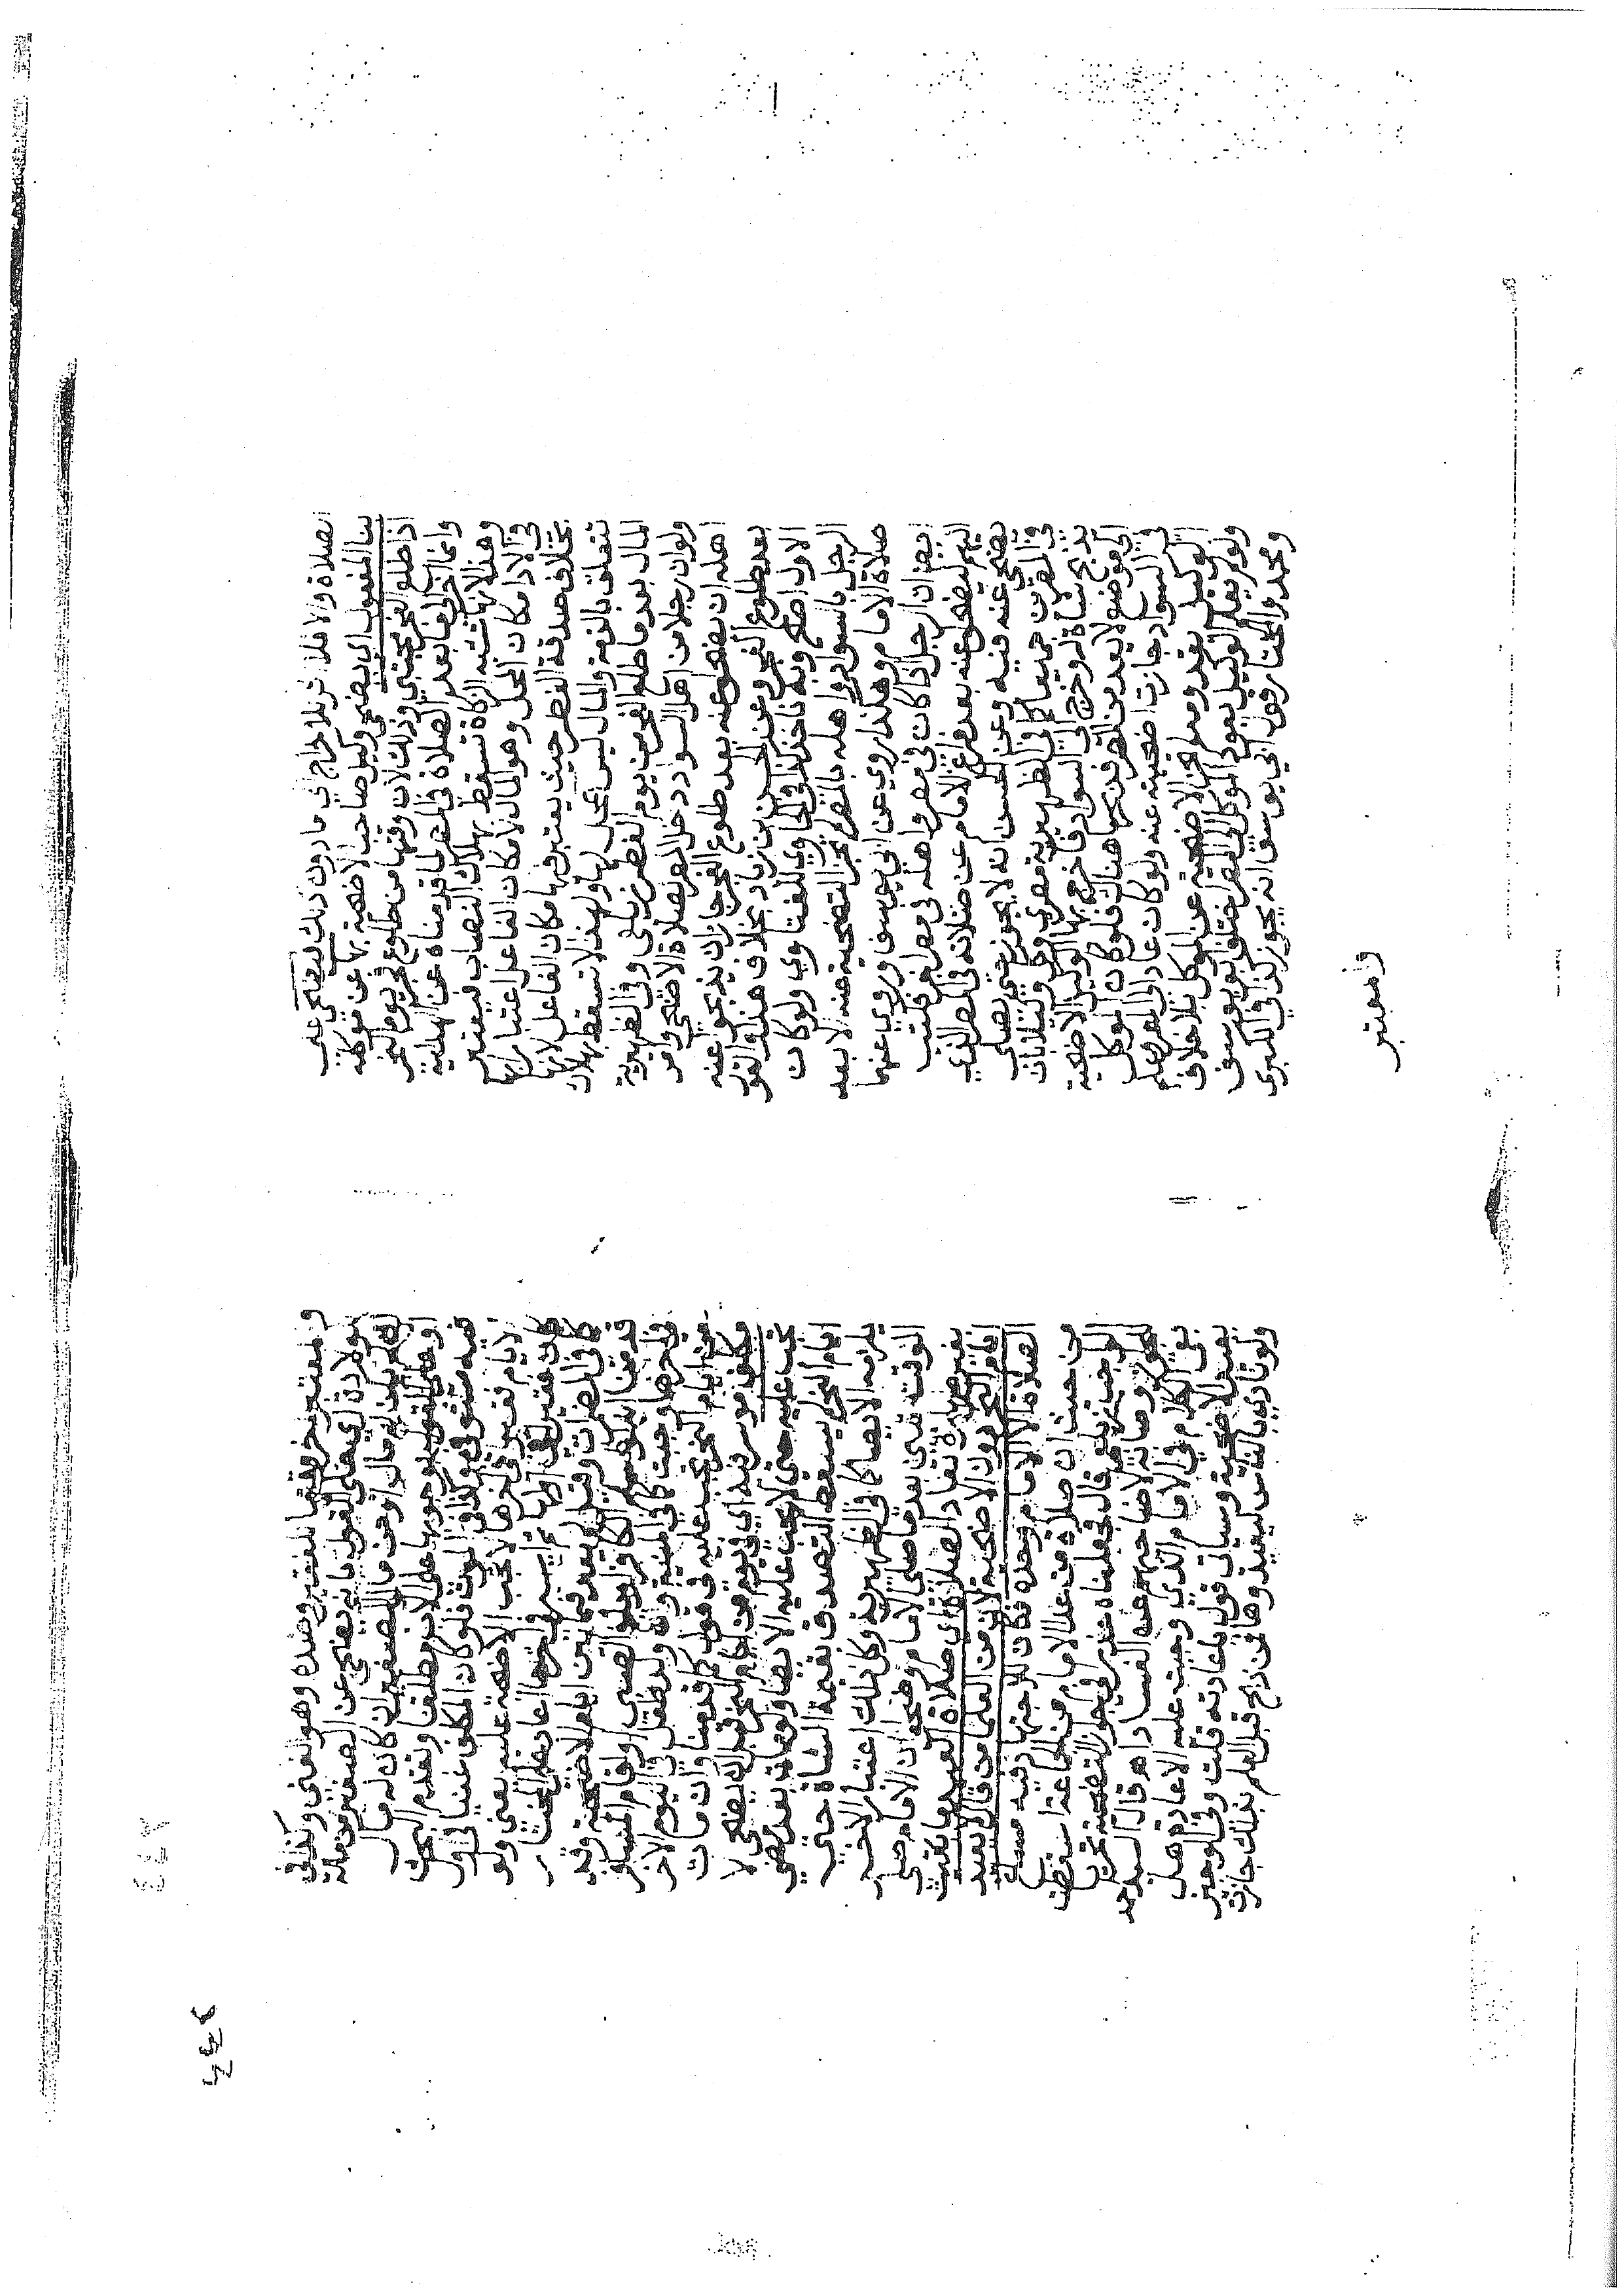 الصلاة والا فلا حراج اي ما دون ذلك ليضحي عنه
بنا للمفعول اي يضحي وكيل صاحب الاضحية بها عن موكله
اذا طلع الفجر مجتبي وذلك لان وقتها من طلوع فجر يوم النحر
وانما اخر الي ما بعد الصلاة في المصر لما قدمناه عن الهداية
وهذا لانها تشبه الزكاة تسقط بهلاك النصاب فيعتبر
في الادا مكان المحل وهو المال لا مكان الفاعل اعتبارا بها
بخلاف صدقة الفطر حيث يعتبر فيها مكان الفاعل لانها
تتعلق بالذمة والمال ليس بمحل لها ولهذا لا تسقط بهلاك
المال بعد ما طلع الفجر من يوم الفطر زيلعي وفي الظهيرية
ولو ان رجلا من اهل السواد دخل المصر لصلاة الاضحي وامر
اهله ان يضحوا عنه بعد طلوع الفجر جاز ان يذبحوا عنه
بعد طلوع الفجر وعن الحسن بن زياد بخلاف هذا والقول
الاول اصح وبه ناخذ كذا في الحاوي للفتاوي ولو كان
الرجل بالسواد واهله بالمصر لم تجز التضحية عنه الا بعد
صلاة الامام وهكذا روي عن ابي يوسف وروي عنهما
ايضا ان الرجل اذا كان في مصر واهله في مصر اخر فكتب
اليهم ليضحوا عنه بعد فراغ الامام عن صلاته في المصر الذي
يضحي عنه فيه وعن الحسن انه لا يجوز حتي يصلي
في المصرين جميعا كما في الظهيرية مصري وكل وكيلا بان
يذبح شاة له وخرج الي السواد فاخرج بها الوكيل الاضحية
الي موضع لا يعد من المصر فذبحها هناك فلو كان الموكل
في السواد جازت اضحيته عنه ولو كان عاد الي المصر وعلم
الوكيل بقدومه لم تجز الاضحية عن الموكل بلا خلاف
ولو لم يعلم الوكيل بعود الموكل الي المصر اختلف ابو يوسف
ومحمد والمختار قول ابي يوسف انه يجوز كذا في الكبري
والمعتبر
والمعتبر اخر وقتها للفقير وضده وهو الغني وكذا في
الولادة اي علي القول بانه يضحي عن الصغير من ماله
ان لم يكن له مال او من مال الصغير ان كان له مال
او علي القول بوجوبها علي الاب مطلقا وتقدم البحث
فيه مستوفي وكذا في الموت فلو كان المكلف غنيا في اول
الايام فقيرا في اخرها لا تجب الاضحية عليه يعني ولو
كان فقيرا في اولها ثم ايسر في اخرها اعادها في المختار
كما في المضمرات وقيل لم يعد فيما بين ايام الاضحية وقد
قدمنا انه لو اسلم الكافر او بلغ الصبي او اقام المسافر
في اخرها وجبت كما في المنية وان ولد طفل في اليوم الاخر
من ايام النحر تجب عليه في قول كما قدمنا وان مات
مكلف موسر فيه اي في يوم من ايام النحر قبل ان يضحي لا
تجب عليه حتي لا يجب عليه الايصا ولو مات بعد مضي
ايام النحر لم يسقط التصدق بقيمة الشاة حتي
يلزمه الايصا كما في الظهيرية وكان ذلك اعتبار الاخير
الوقت تبين بعد ما صلي الامام وضحوا ان الامام صلي
بغير طهارة تعاد الصلاة اي صلاة العيد ما بقيت
ايام النحر دون الاضحية لان من العلما من قال لا يعيد
الصلاة الا الامام وحده فكان للاجتهاد فيه مساغ
من حيث ان صلاة من عدا الامام من الجماعة اسقطت
الواجب بزعمهم قال فجعلناه عذرا في جواز التضحية تحريا
للجواز وصيانة لاضاحيهم عن الفساد اهـ قال السيد احمد
بقي الكلام في الامام الذي وجبت عليه الاعادة هل
يعيد الاضحية وسياتي قول باعادته قلت وفي الوجيز
ولو نادي بالناس ليعيدوها فمن ذبح قبل العلم بذلك جازت